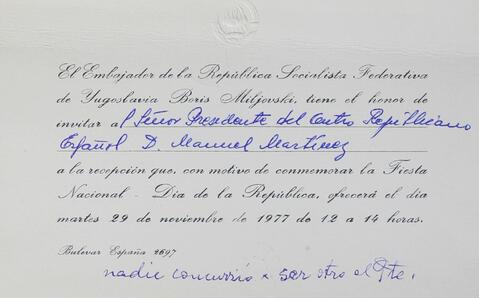 El Embajador de la República Socialista Federativa
de Yugoslavia Boris Miljovski, tiene el honor de
invitar al Señor Presidente del Centro Repúblicano
Español D. Manuel Martínez
a la recepción que, con motivo de conmemorar la Fiesta
Nacional - Día de la República, ofrecerá el día
martes 29 de noviembre de 1977 de 12 a 14 horas.
Bulevar España 2697
nadie concurrió x ser otro el Pte.